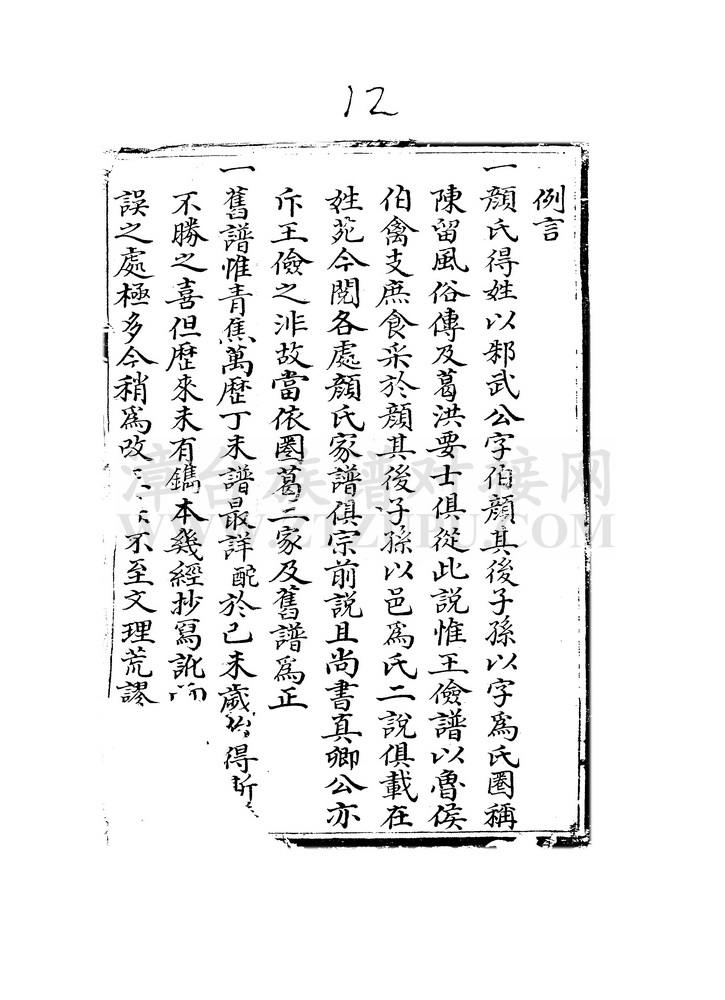 12
例言
一顏氏得姓以邾武公字伯顏其後子孫以字為氏圈稱
陳留風俗傳及葛洪要士俱從此說惟王儉譜以魯侯
伯禽支庶食采於顏其後子孫以邑為氏二說俱載在
姓苑今閱各處顏氏家譜俱宗前說且尚書真卿公亦
斥王儉之非故當依圈葛二家及舊譜為正
一舊譜惟青焦萬歷丁未譜最詳配於己未歲得
不勝之喜但歷來未有鐫本幾經抄寫訛
誤之處極多今稍為改不至文理荒謬
漳台族谱对接网
WWW.ZTZUPU.COM